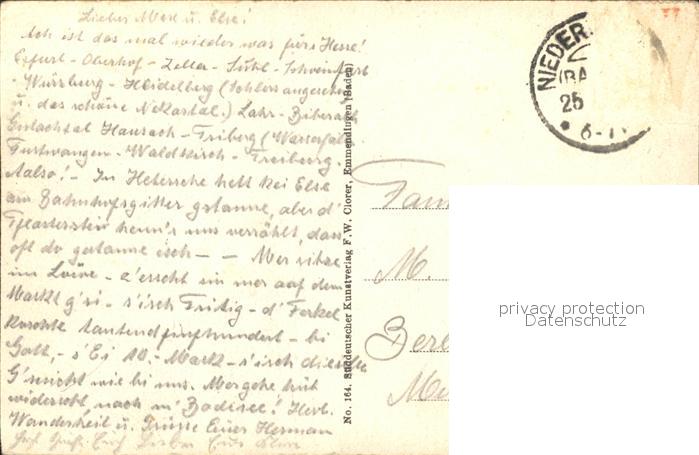 Lieber Max u. Else!
Ach ist das mal wieder was fürs Herze!
Erfurt - Oberhof - Zella - Suhl - Schweinfurt
- Würzburg - Heidelberg (Schloss angesehen
u. das schöne Neckartal.) Lahr - Biberach
Hausach - Triberg (Wasserfall)
Furtwangen - Waldkirch - Freiburg.
Aalso! - In hett kei Else
am Bahnhofsgitter gstanne, aber d'
Pflasterstein henn's uns verzählt, dass
oft do gstanne isch - - Mer sitze
im Löwe - z'erscht sin mer auf dem
Markt g'si - s'isch Fritig - d' Ferkel
koschte tausendfünfhundert - bi
Gott, - s'Ei 10.- Markt - s'isch dieselbe
G'schicht wie bi uns. Morgohe
widerscht, nach m' Badisee! Herzl.
Wanderheil u. Grüsse Euer Herman
No. 164. Süddeutscher Kunstverlag F. W. Clorer, Emmendingen (Baden)
NIEDER
(BA
25
* 6-7
Fam
M.
privacy protection
Datenschutz